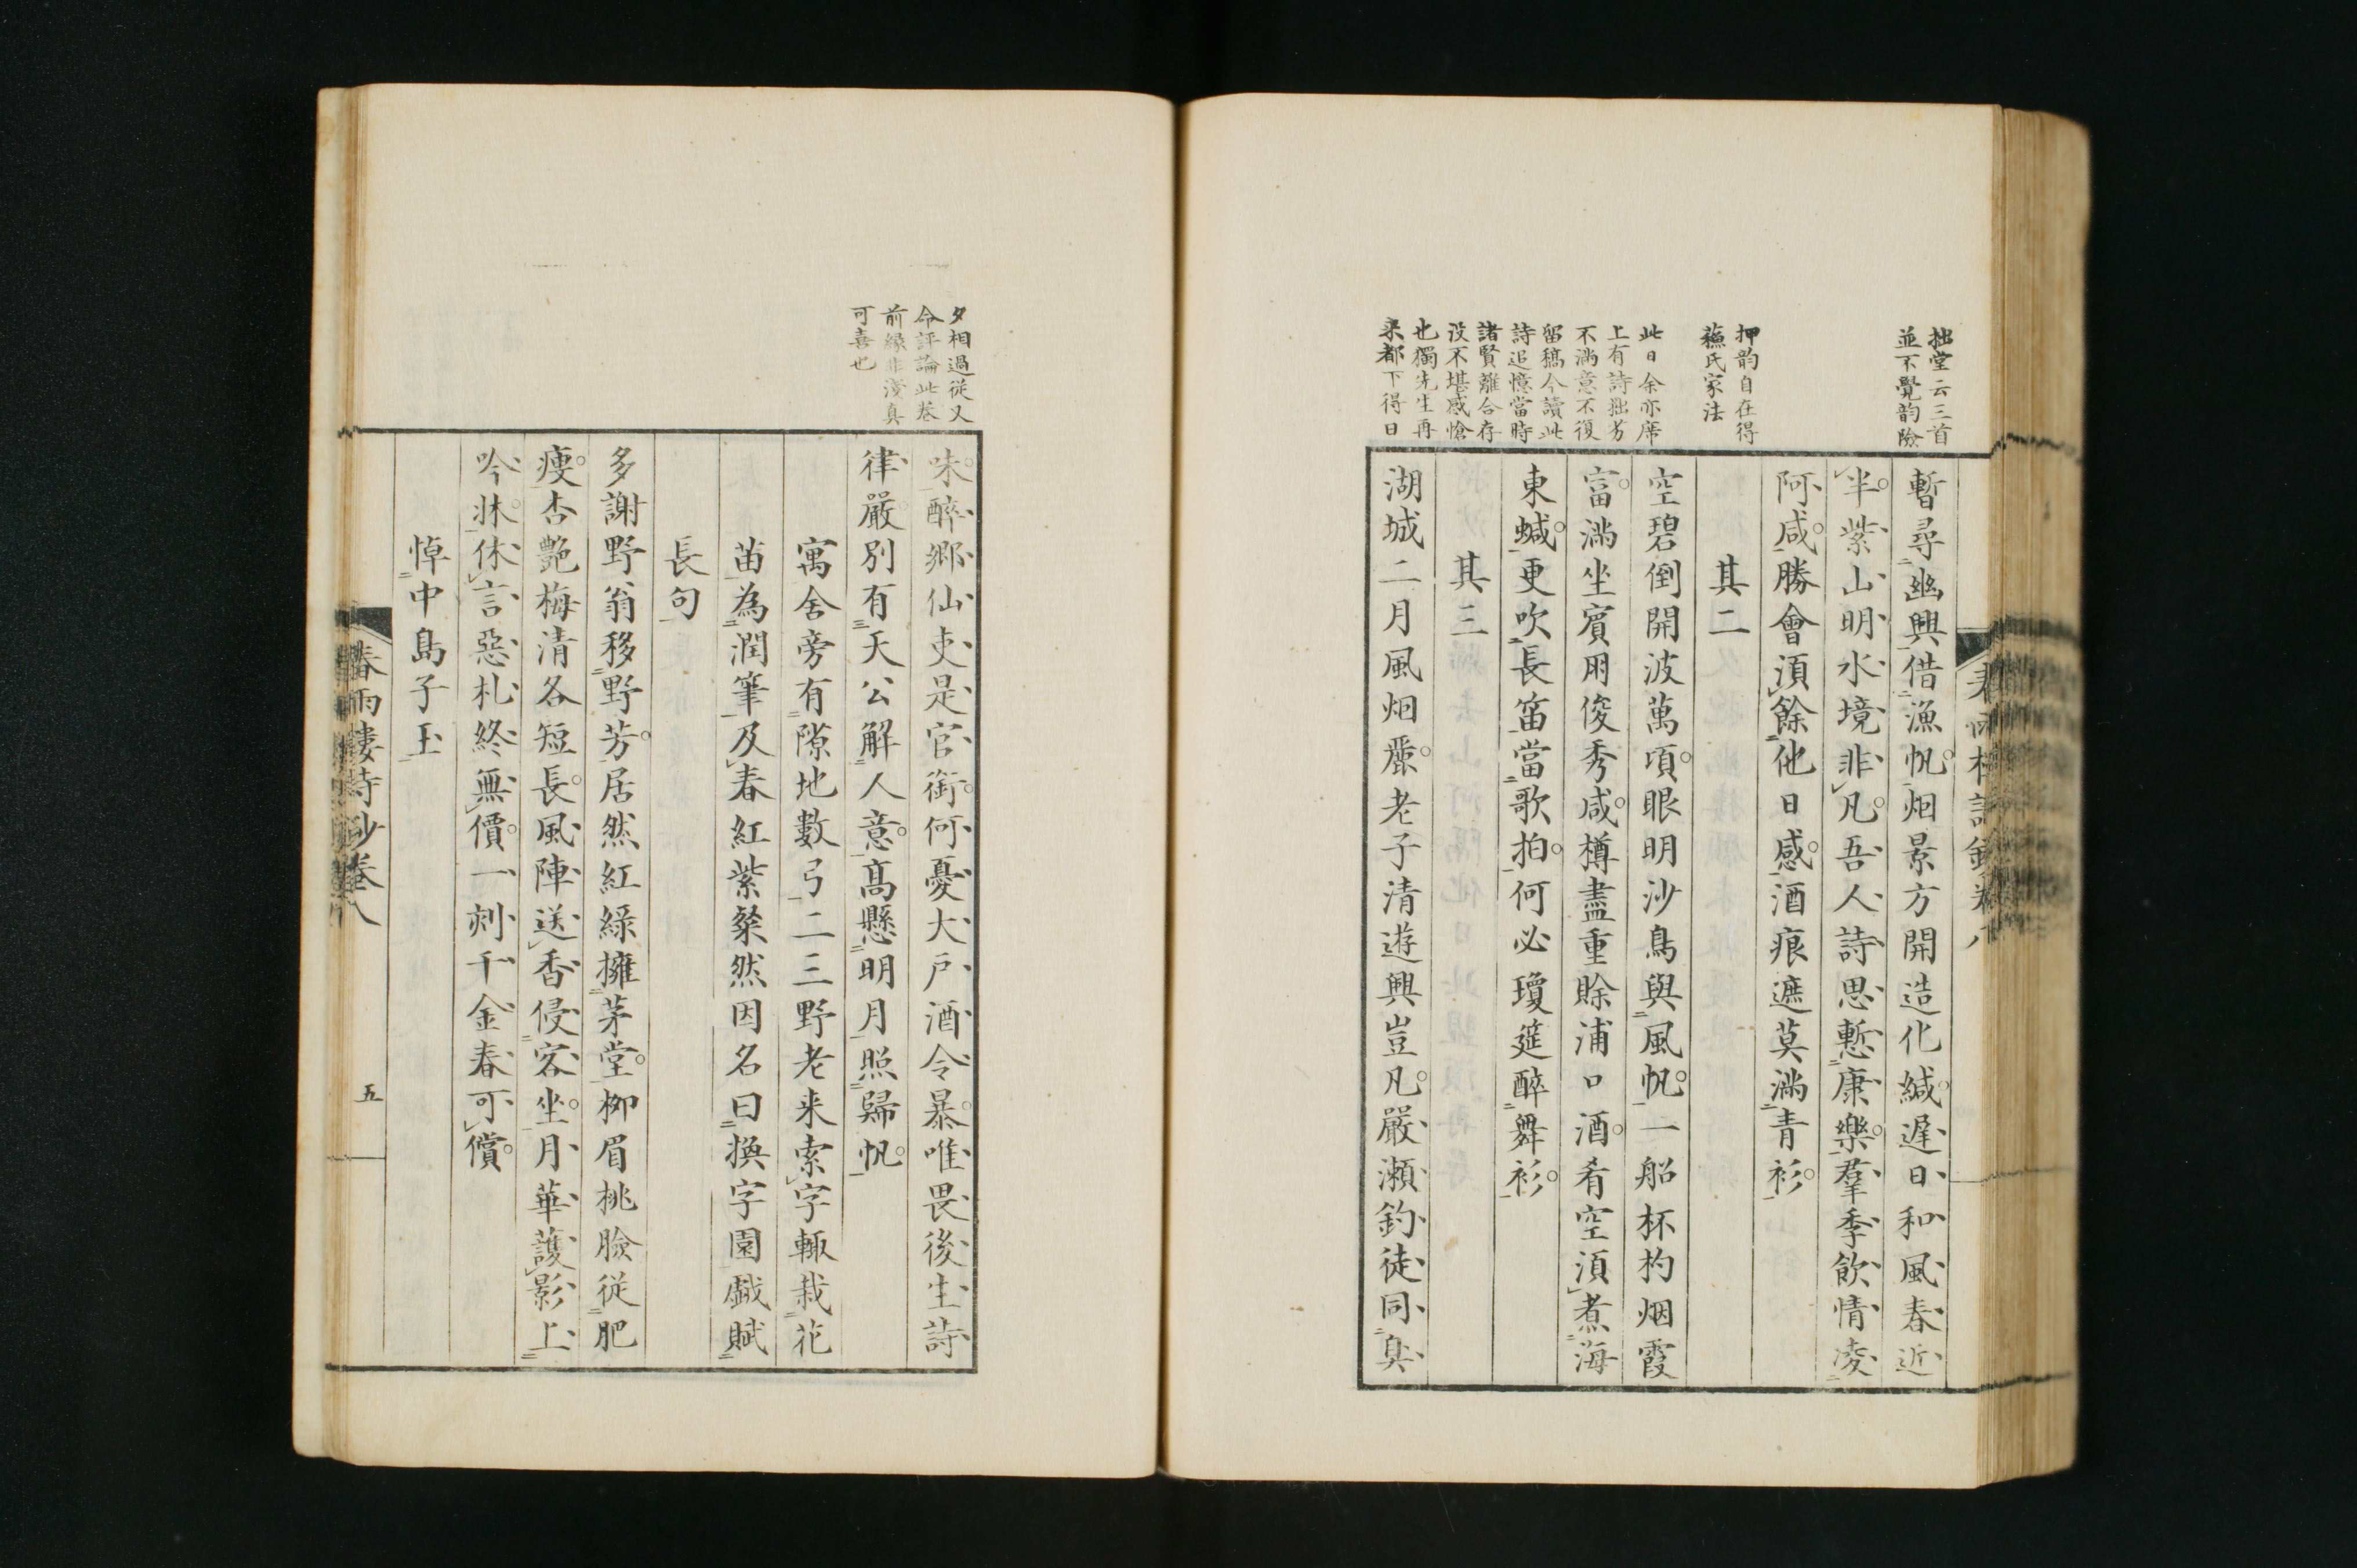 拙堂云三首
並不覺韵險
押韵自在得
蘓氏家法
此日余亦席
上有詩拙劣
不滿意不復
留稿今讀此
詩追憶當時
諸賢離合存
没不堪感愴
也獨先生再
来都下得日
暫尋幽興借漁帆烟景方開造化緘遲日和風春近
半紫山明水境非凡吾人詩思慙康樂羣季飲情凌
阿咸勝會須餘他日感酒痕遮莫滿青衫
其二
空碧倒開波萬頃眼明沙鳥與風帆一船杯杓烟霞
富滿坐賓朋俊秀咸樽盡重賖浦口酒肴空須煮海
東蝛更吹長笛當歌拍何必瓊筵醉舞衫
其三
湖城二月風烟麗老子清遊興豈凡嚴瀬釣徒同臭
夕相過従又
命評論此巻
前縁非淺真
可喜也
味醉郷仙吏是官銜何憂大戸酒令暴唯畏後生詩
律嚴別有天公解人意髙懸明月照歸帆
寓舍旁有隙地數弓二三野老来索字輙栽花
苗為潤筆及春紅紫粲然因名曰換字園戯賦
長句
多謝野翁移野芳居然紅緑擁茅堂栁眉桃臉従肥
瘦杏艶梅清各短長風陣送香侵客坐月華護影上
吟牀休言惡札終無價一刻千金春可償
悼中島子玉
春雨樓詩鈔巻八
五